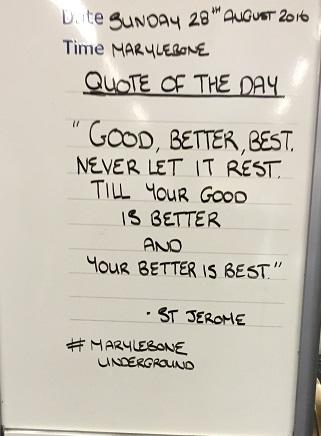 Date SUNDAY 28TH AUGUST 2016
Time MARYLEBONE
QUOTE OF THE DAY
"GOOD, BETTER, BEST.
NEVER LET IT REST.
TILL YOUR GOOD
IS BETTER
AND
YOUR BETTER IS BEST."
· ST JEROME
# MARYLEBONE
UNDERGROUND